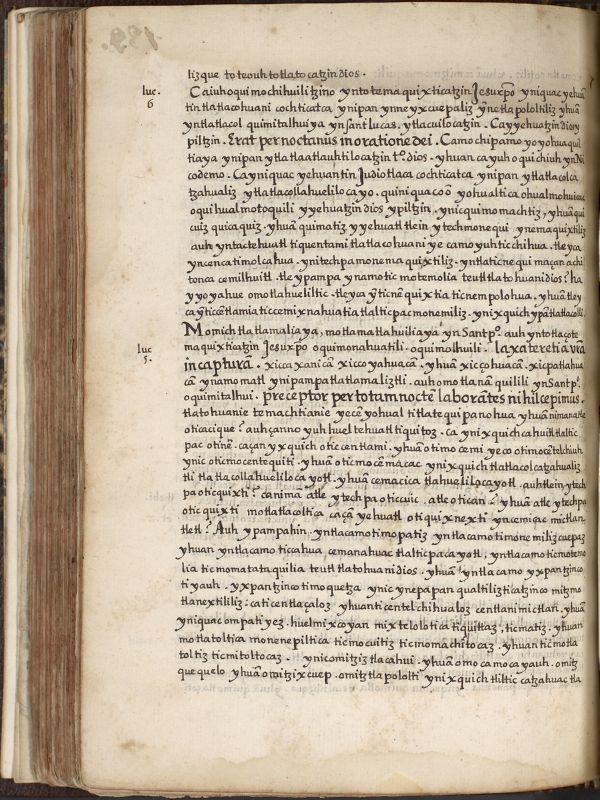 139.
lizque to teouh totlatocatzin dios.
luc. 6
Ca iuh oquimochihuilitzino yn totemaquixticatzin Jesuxpo yn iquac yehuā
tin tlatlacohuani cochticatca yn ipan ynneyxcuepaliz yn netlapololtiliz yhuā
yntlatlacol quimitalhuiya yn sant lucas. ytlacuilocatzin. Ca yyehuatzin dios y
piltzin. Erat pernoctanus in oratione dei. Ca mochipa moyoyohuaquil
tiaya yn ipan ytlatlatlauhtilocatzin to. dios. yhuan ca yuh oquichiuh yn Ni
codemo. Ca yn iquac yehuantin Judiotlaca cochticatca yn ipan ytlatlacolca
tzahualiz ytlatlacollahuelilocayo. quin iquac oō yohualtica ohualmohuicac
oquihualmotoquili yyehuatzin dios ypiltzin. ynic quimomachtiz, yhuā qui
cuiz quicaquiz. yhuā quimatiz yyehuatl tlein ytech monequi ynemaquixtiliz
auh yntac tehuatl tiquentami titlatlacohuani ye camo yuh ticchihua. tleyca
yn cenca timolcahua. yn itechpa monemaquixtiliz. yntlaticnequi maçan achi
tonca cemilhuitl. tle ypampa ynamo tic motemolia teutl tlatohuani dios? ha
yyoyahue omotlahueliltic. tleyca yn ticnēquixtia ticnempolohua, yhuā tley
ca yn ticcētlamia ticcemixnahuatia tlalticpac monemiliz. yn ixquich ypā titlatlacolli.
Momich tlatlamaliaya, motlamatlahuiliaya yn Sant po. auh yn totlaçote
luc 5.
maquixticatzin Jesuxpo oquimonahuatili. oquimolhuili. laxate retia vr̄a
in capturā. xiccaxanicā xiccoyahuacā. yhuā xicçohuacā. xicpatlahua
cā ynamomatl yn ipampa tlatlamaliztli. auh omotlanāquilili yn Sant po.
oquimitalhui. preceptor per totam nocte laborātes nihil cepimus.
tlatohuanie temachtianie ye cē yohual titlatequipanohua yhuā nimanatle
oticacique? auh çanno yuh huel tehuatl tiquitoz. ca yn ixquich cahuitl tlaltic
pac otinē. caçan yxquich oticcentlami. yhuā otimocemiyeco otimocētelchiuh
ynic oticmocentequiti. yhuā oticmocēmacac yn ixquich tlatlacolcatzahualiz
tli tlatlacollahuelilocayotl. yhuā cemacica tlahuelilocayotl. auh tlein ytech
pa oticquixti? canima atle ytechpa oticcuic. atle otican? yhuā atle ytechpa
oticquixti motlatlacoltica caçā yehuatl otiquixnexti yn cemicac mictlan
tletl? Auh ypampa hin, yntlacamo timopatiz yntlacamo timonemilizcuepaz
yhuan yntlacamo ticcahua, cemanahuac tlalticpacayotl, yntlacamo ticmotemo
lia ticmomatataquilia teutl tlatohuani dios. yhuā yntlacamo yxpantzinco
tiyauh. yxpantzinco timoquetza ynic ynepapan qualtiliztica tzinco mitzmo
tlanextililiz: ca ticentlaçaloz yhuan ticentelchihualoz centlani mictlan. yhuā
yn iquac ompa tiyez. huel mixcoyan mixtelolotica tiquittaz, ticmatiz. yhuan
motlatoltica monenepiltica ticmocuitiz ticmomachitocaz. yhuan ticmotla
toltiz ticmitoltocaz. yn icomitztlacahui. yhuā omocamocayauh. omitz
quequelo yhuā omitzixcuep. omitztlapololti yn ixquich tliltic catzahuac tla